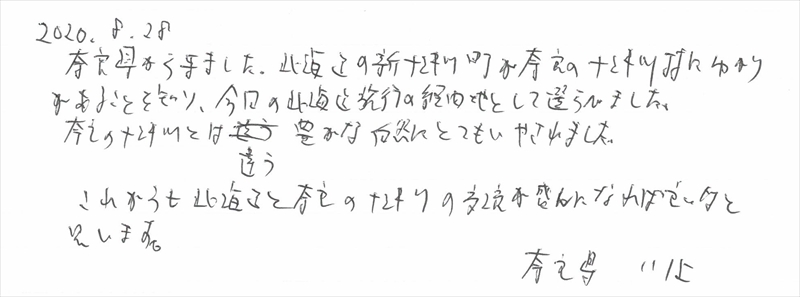 2020.8.28
奈良県から来ました。北海道の新十津川町が奈良の十津川村にゆかり
があることを知り、今回の北海道旅行の経由地として選びました。
奈良の十津川とは違う 豊かな自然にとてもいやされました。
違う
これからも北海道と奈良の十津川の交流が盛んになれば良いなと
思います。
奈良県 川上